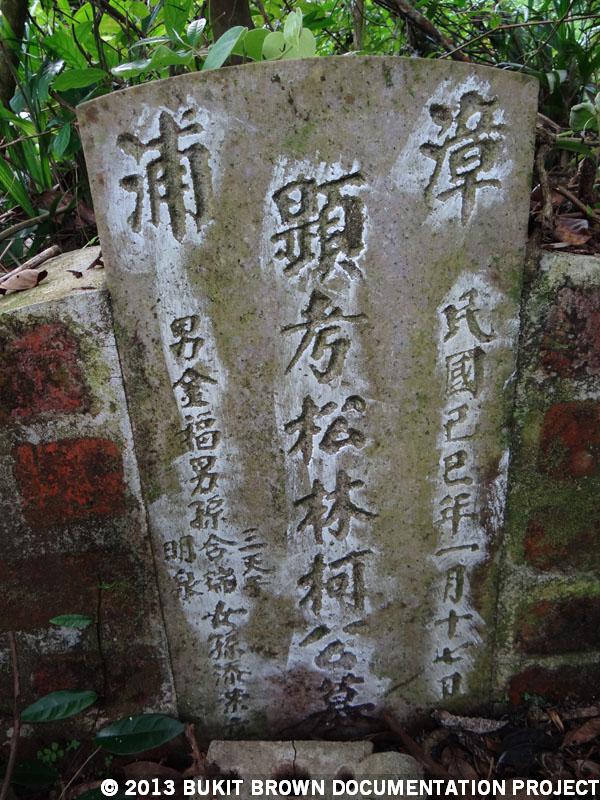 漳
浦
民國己巳年一月十七日
顯考松林柯公墓
男金福男孫含瑞
明泉
女孫添
© 2013 BUKIT BROWN DOCUMENTATION PROJECT